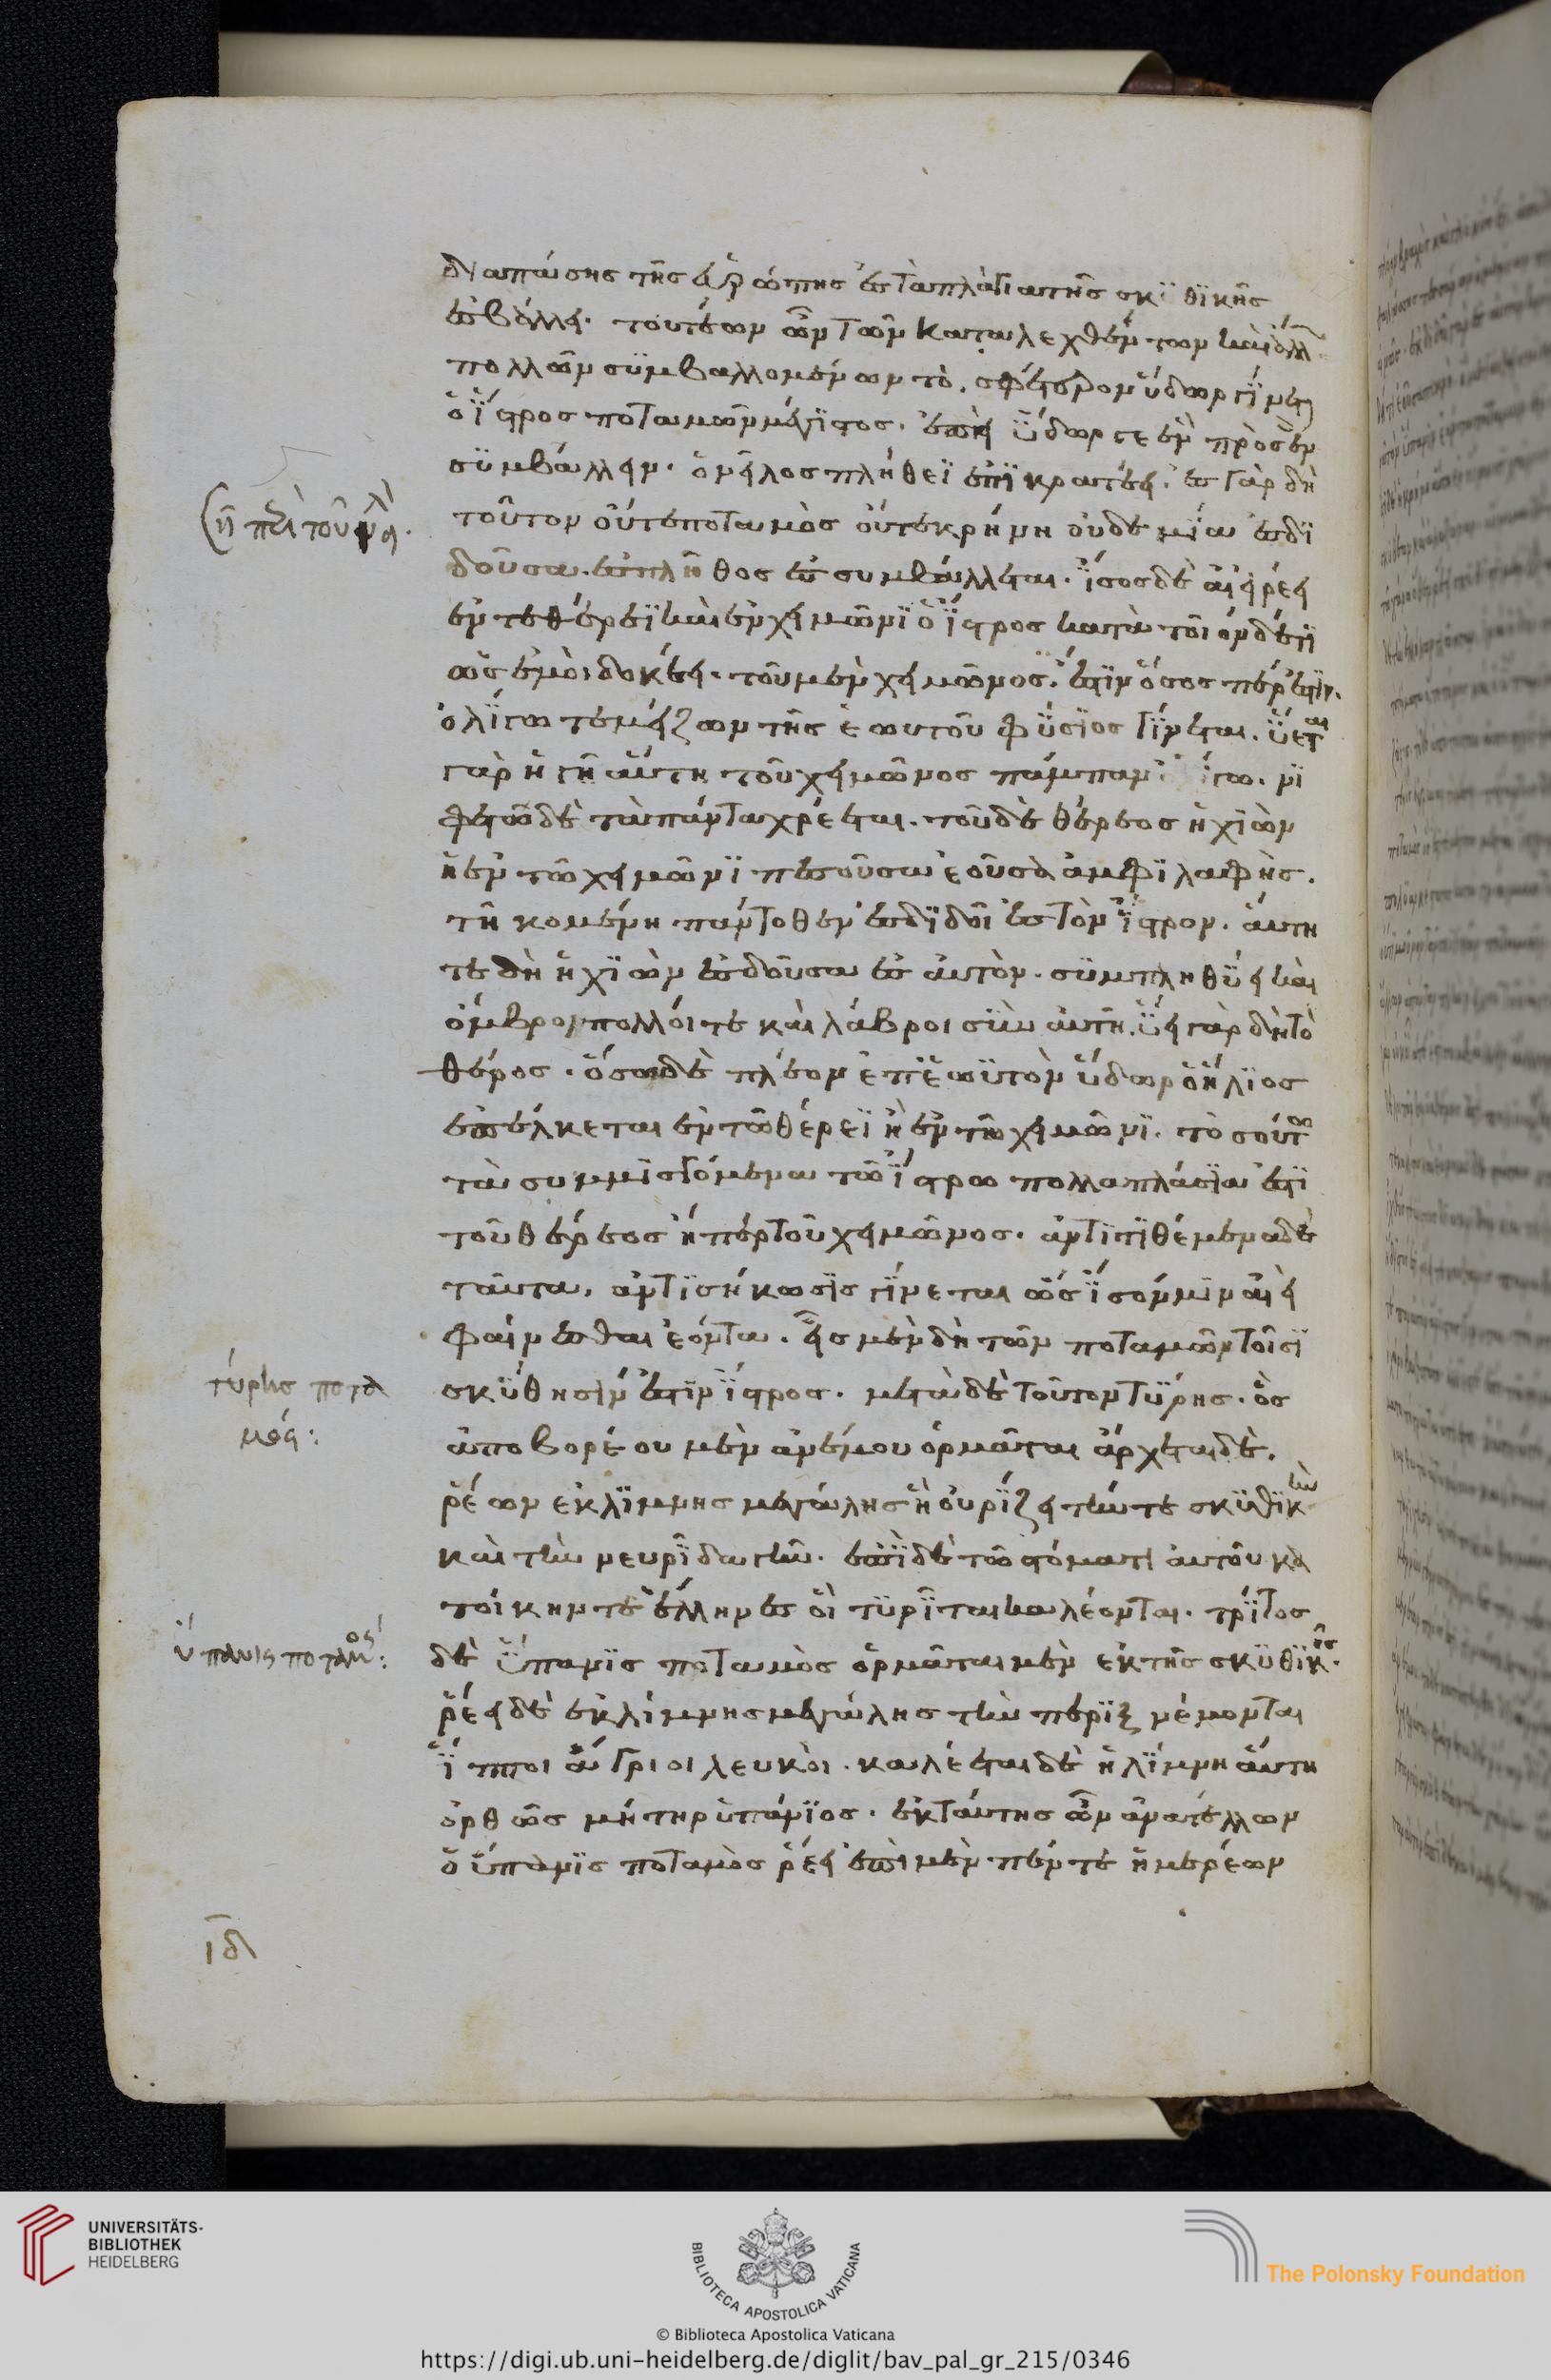 διαπάσης τῆς εὐρώπης ἐς τὰ πλάγια τῆς σκϋθϊκῆς
ἐσβάλλει. τουτέων ὦν τῶν καταλεχθέντων καὶ ἄλλ
πολλῶν συμβαλλομένων τὸ σφέτερον ὕδωρ γΐνεται
ὁ ἴστρος ποταμῶν μέγϊστος. ἐπεὶ ὕδωρ γε ἓν πρὸς ἓν
συμβάλλειν. ὁ νεῖλος πλήθεϊ ἐπϊκρατέει. ἐς γὰρ δὴ
(ἢ περὶ τοῦ
τοῦτον οὔτε ποταμὸς οὔτε κρήνη οὐδεμία ἐσδϊ
δοῦσα. ἐς πλῆθος ἐς συμβάλλεται. ἴσος δὲ αἰεὶ ῥέει
ἔν τε θέρεϊ καὶ ἐν χειμῶνϊ ὁ ἴστρος κατὰ τοιόνδέ τϊ
ὡς ἐμοὶ δοκέει. τοῦ μὲν χειμῶνος. ἐστϊν ὅσος πέρ ἐστϊν.
ὀλΐγω τε μείζων τῆς ἑωυτοῦ φύσϊος γΐνεται. ὕεται
γὰρ ἡ γῆ αὕτη τοῦ χειμῶνος πάμπαν ὀλίγω. νϊ
φετῶ δὲ τὰ πάντα χρέεται. τοῦ δὲ θέρεος ἡ χϊὼν
ἡ ἐν τῶ χειμῶνϊ πεσοῦσα ἐοῦσα ἀμφϊλαφὴς.
τηκομένη πάντοθεν ἐσδϊδοῖ ἐς τὸν ἴστρον. αὕτη
τε δὴ ἡ χϊὼν ἐσδοῦσα ἐς αὐτὸν. συμπληθΰει καὶ
ὄμβροι πολλοί τε καὶ λάβροι σὺν αὐτῆ. ὕει γὰρ δὴ τὸ
θέρος. ὅσω δὲ πλέον ἐπ' ἑωϋτὸν ὕδωρ ὁ ἥλϊος
ἐπέλκεται ἐν τῶ θέρεϊ ἢ ἐν τῶ χειμῶνϊ. τοσούτω
τὰ συμμϊσγόμενα τῶ ἴστρω πολλαπλάσϊα ἐστϊ
τοῦ θέρεος ἤπερ τοῦ χειμῶνος. ἀντϊτϊθέμενα δὲ
ταῦτα, ἀντϊσήκωσϊς γΐνεται ὥς ἴσον μϊν αἰεὶ
φαίνεσθαι ἐόντα. εἷς μὲν δὴ τῶν ποταμῶν τοῖσϊ
τύρης ποτα
μός:
σκύθησϊν ἐστϊν ἴστρος. μετὰ δὲ τοῦτον τΰρης. ὃς
ἀπὸ βορέου μὲν ἀνέμου ὁρμᾶται ἄρχεται δὲ.
ῥέων ἐκ λΐμνης μεγάλης ἣ οὐρΐζει τήν τε σκυθϊκὴν
καὶ τὴν νευρΐδα γῆν. ἐπϊ δὲ τῶ στόματι αὐτοῦ κα
τοίκηντε ἕλληνες οἳ τυρῖται καλέονται. τρΐτος
ὕπανις ποταμός:
δὲ ὕπανϊς ποταμὸς ὁρμᾶται μὲν ἐκ τῆς σκϋθϊκῆς.
ῥέει δὲ ἐκ λίμνης μεγάλης τὴν πέρϊξ νέμονται
ἵπποι ἄγριοι λευκοὶ. καλέεται δὲ ἡ λΐμνη αὕτη
ὀρθῶς μήτηρ ὑπάνϊος. ἐκ ταύτης ὦν ἀνατέλλων
ὁ ὕπανϊς ποταμὸς ῥέει ἐπὶ μὲν πέντε ἡμερέων
ιδ
UNIVERSITÄTS-
BIBLIOTHEK
HEIDELBERG
BIBLIOTECA APOSTOLICA VATICANA
The Polonsky Foundation
© Biblioteca Apostolica Vaticana
https://digi.ub.uni-heidelberg.de/diglit/bav_pal_gr_215/0346